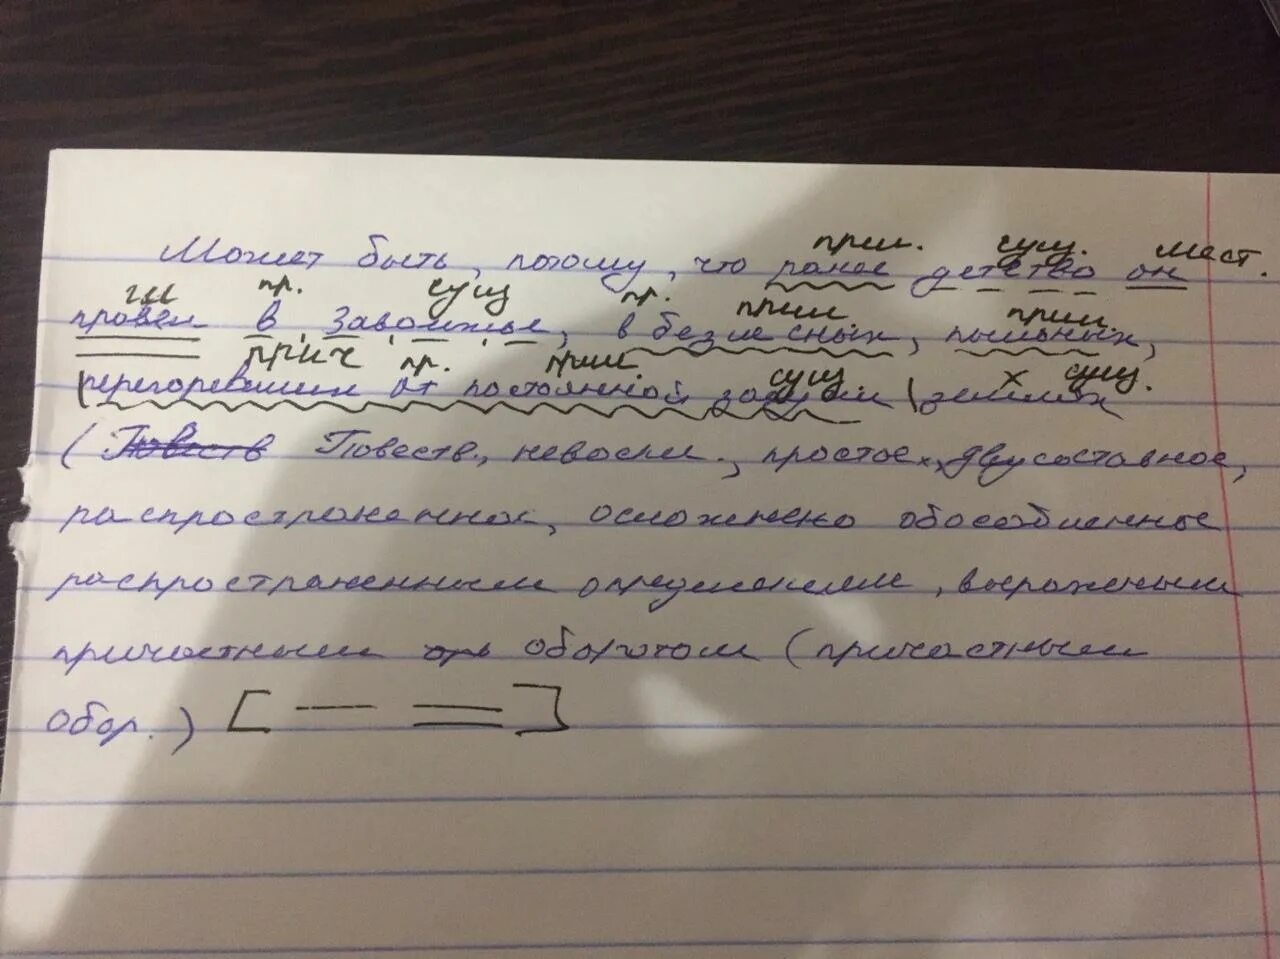 прил. сущ. мест.
Может быть, потому, что ранее детство он
гл пр. сущ пр. прил. прил.
провел в Заволжье, в безлесных, пыльных,
прич пр. прил. сущ х сущ.
перегоревших от постоянной засухи землях
(Повеств Повеств., невоскл., простое, двусоставное,
распространенное, осложнено обособленные
распространенным определением, выраженым
причастным оборотом (причастным
обор.)